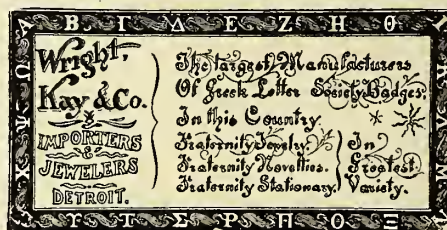 Α Β Γ Δ Ε Ζ Η Θ
Wright,
Kay & Co.
IMPORTERS
&
JEWELERS
DETROIT.
The Largest Manufacturers
Of Greek Letter Society Badges,
In this Country.
Fraternity Jewelry
Fraternity Novelties.
Fraternity Stationary.
In
Greatest
Variety.
Υ Τ Σ Ρ Π Ο Ξ